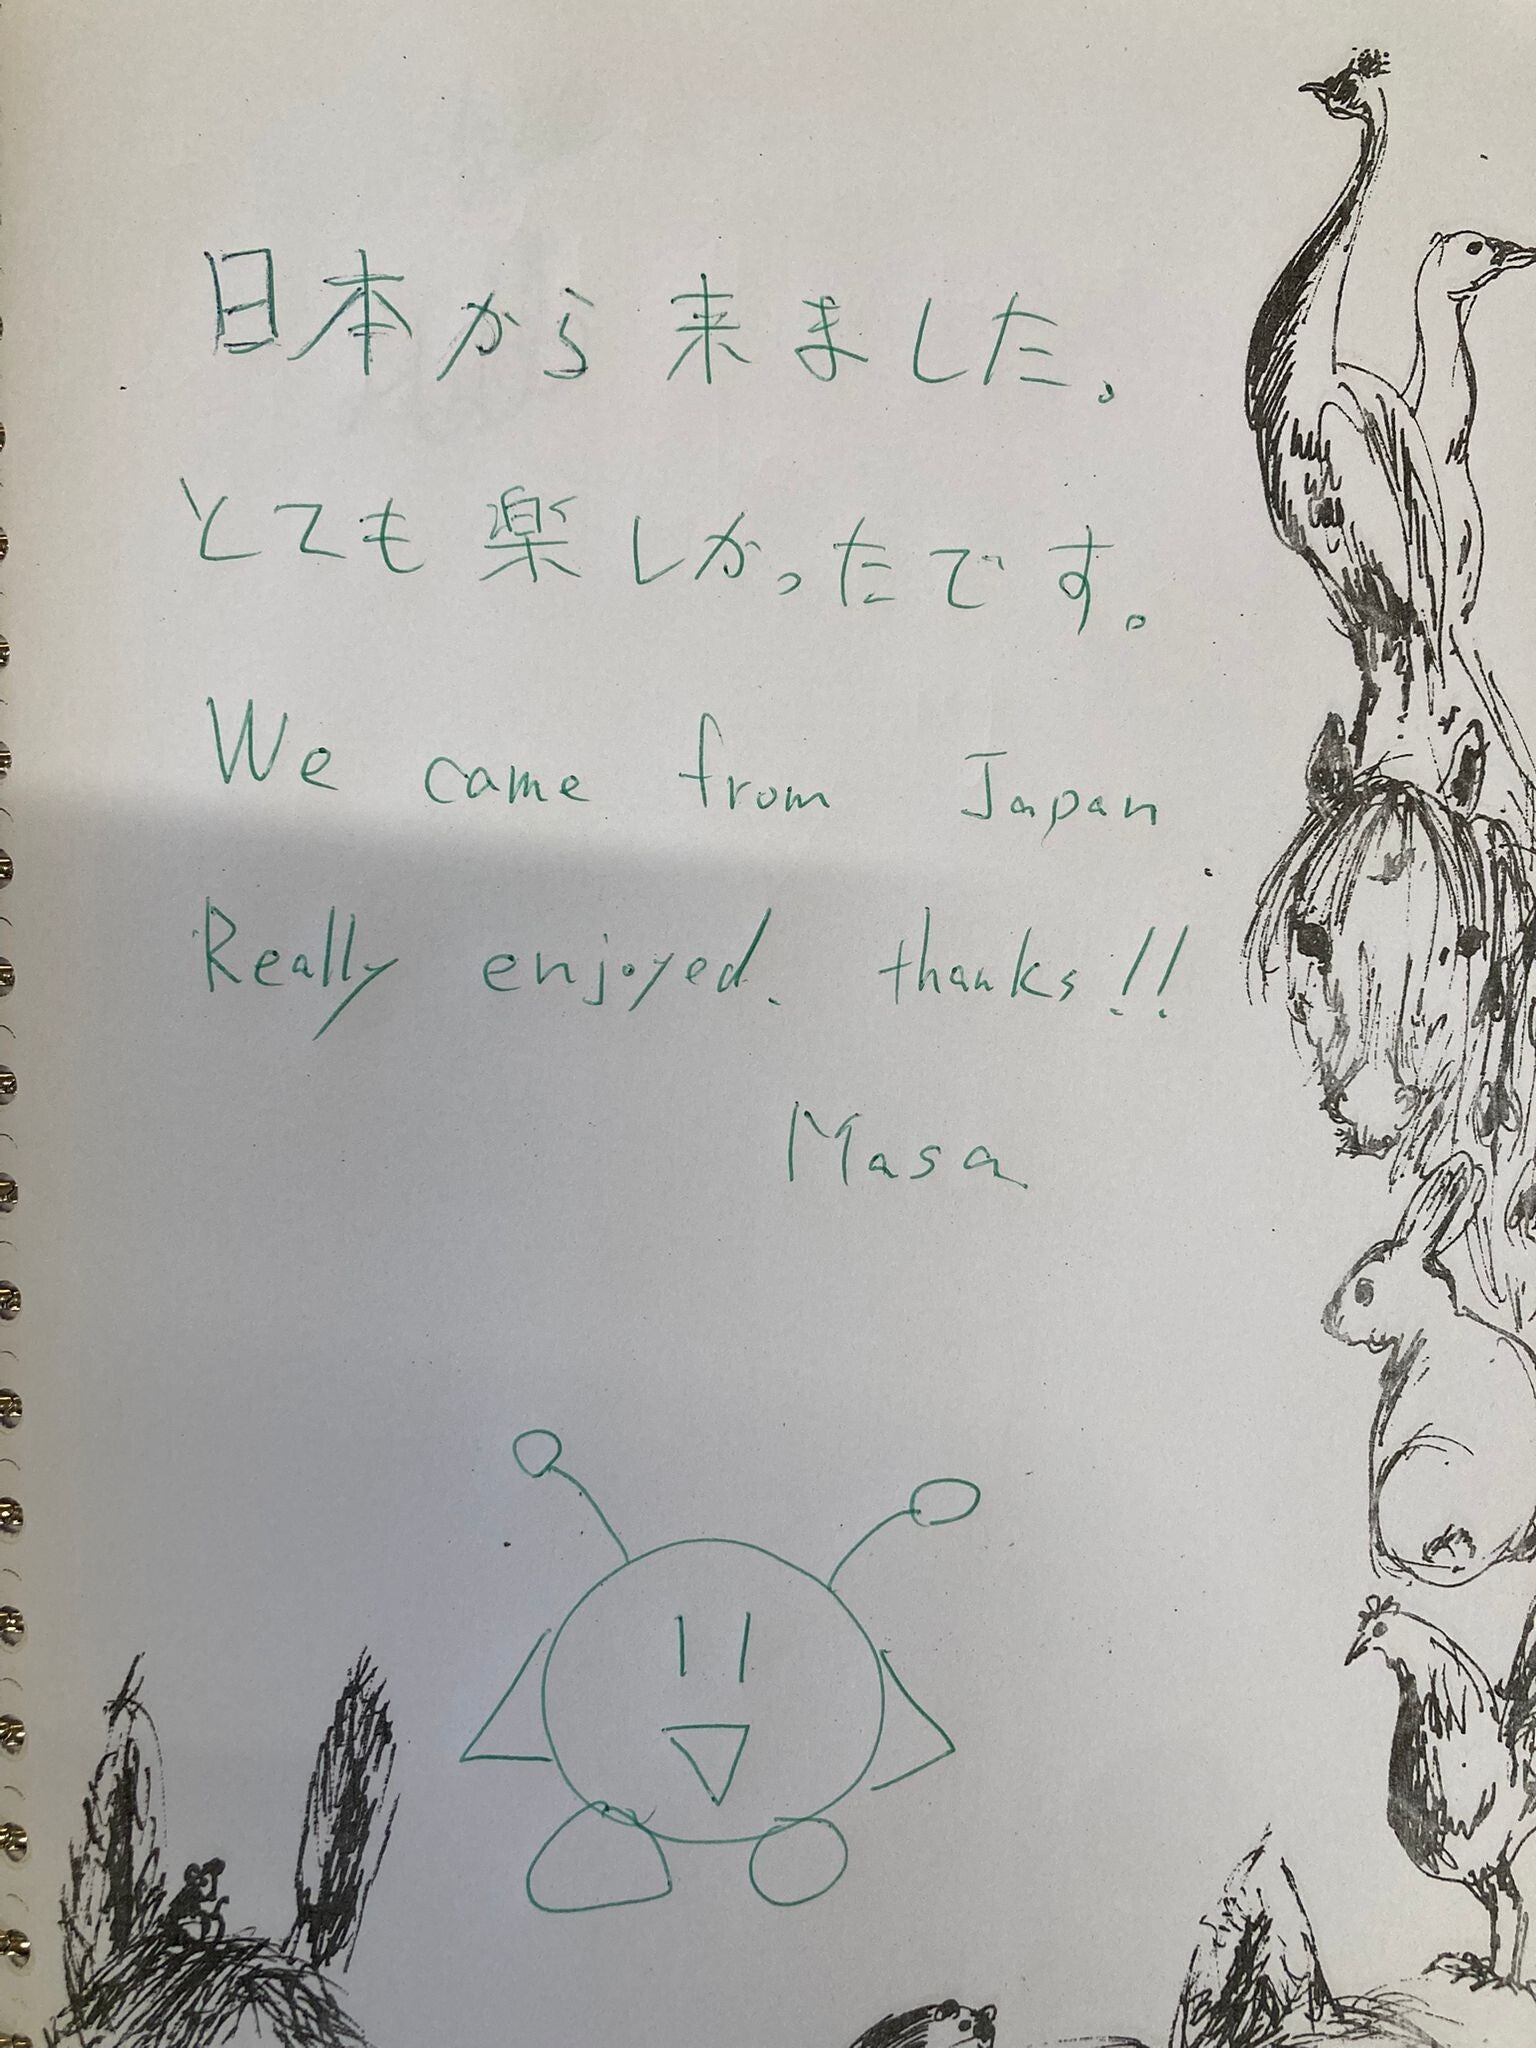 日本から来ました。
とても楽しかったです。
We came from Japan.
Really enjoyed. thanks!!
Masa